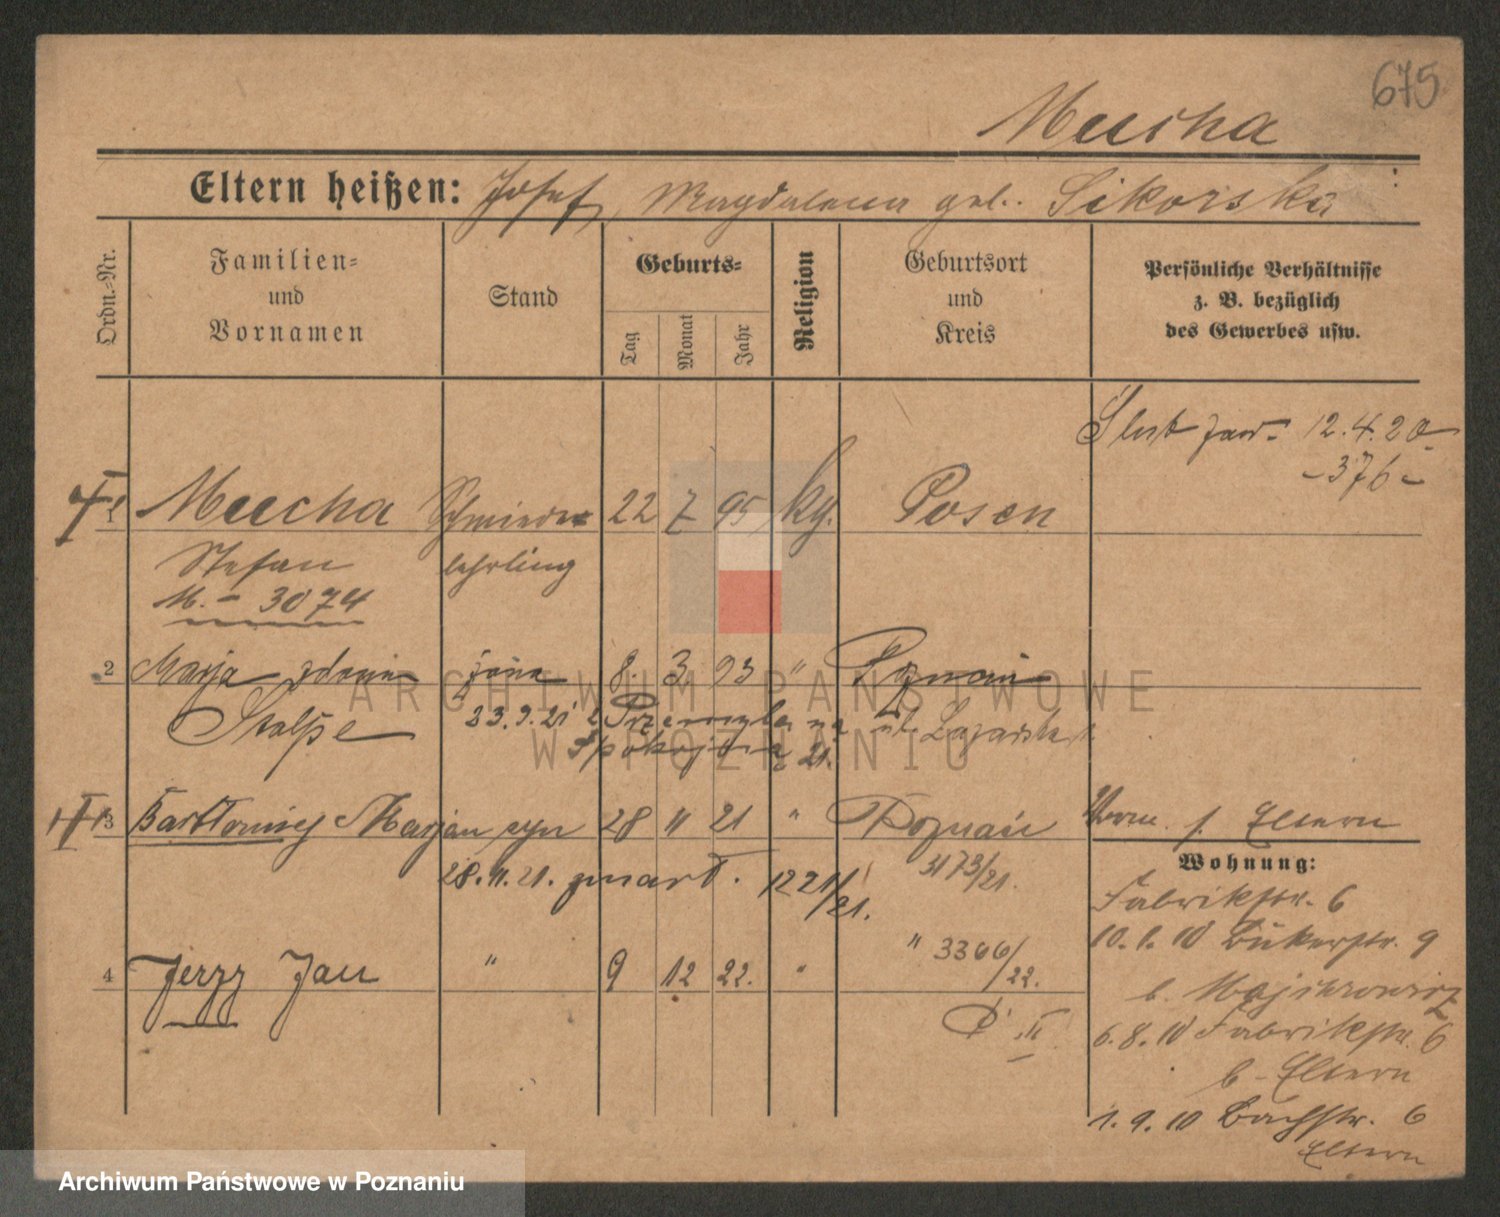 675
Mucha
Eltern heißen: Josef, Magdalena geb. Sikorska
Ordn.-Nr.
Familien-
und
Vornamen
Stand
Geburts-
Tag
Monat
Jahr
Religion
Geburtsort
und
Kreis
Persönliche Verhältnisse
z. B. bezüglich
des Gewerbes usw.
Ślub zaw. 12.4.20
-376-
1 Mucha Schmiede 22 7 95 kg. Posen
Stefan lehrling
M. - 3074
2 Marja zdomu żona 8. 3. 93 " Poznań
Stolpe 23.9.21 Przemysłowa ul. Lazarska
Spokojna 21.
3 Bartłomiej Marjan syn 28 11 21 " Poznań
Vorm. s. Eltern
28.11.21. zmarł. 1221/21. 3173/21.
Wohnung:
Fabrikstr. 6
10.1.10 Bäkerstr. 9
4 Jerzy Jan " 9 12 22. " " 3366/22.
b. Majchrowicz
II
6.8.10 Fabrikstr. 6
b. Eltern
1.9.10 Bachstr. 6
Eltern
ARCHIWUM PAŃSTWOWE
W POZNANIU
Archiwum Państwowe w Poznaniu